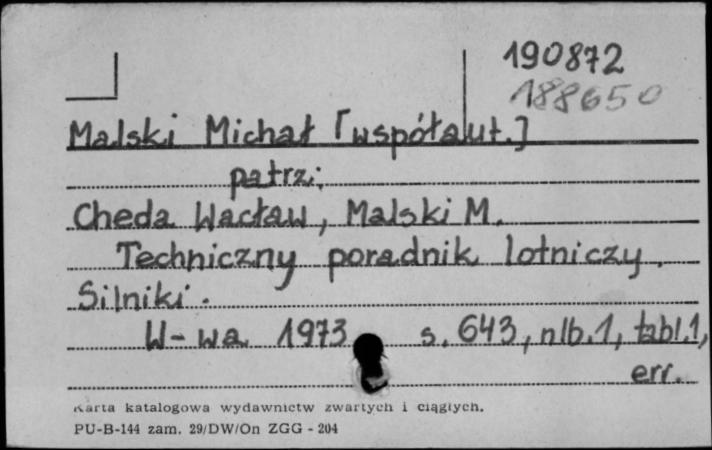 190872
188650
Malski Michał [współaut.]
patrz:
Cheda Wacław, Malski M.
Techniczny poradnik lotniczy.
Silniki.
W-wa 1973 s. 643, nlb. 1, tabl. 1,
err.
Karta katalogowa wydawnictw zwartych i ciągłych.
PU-B-144 zam. 29/DW/On ZGG - 204